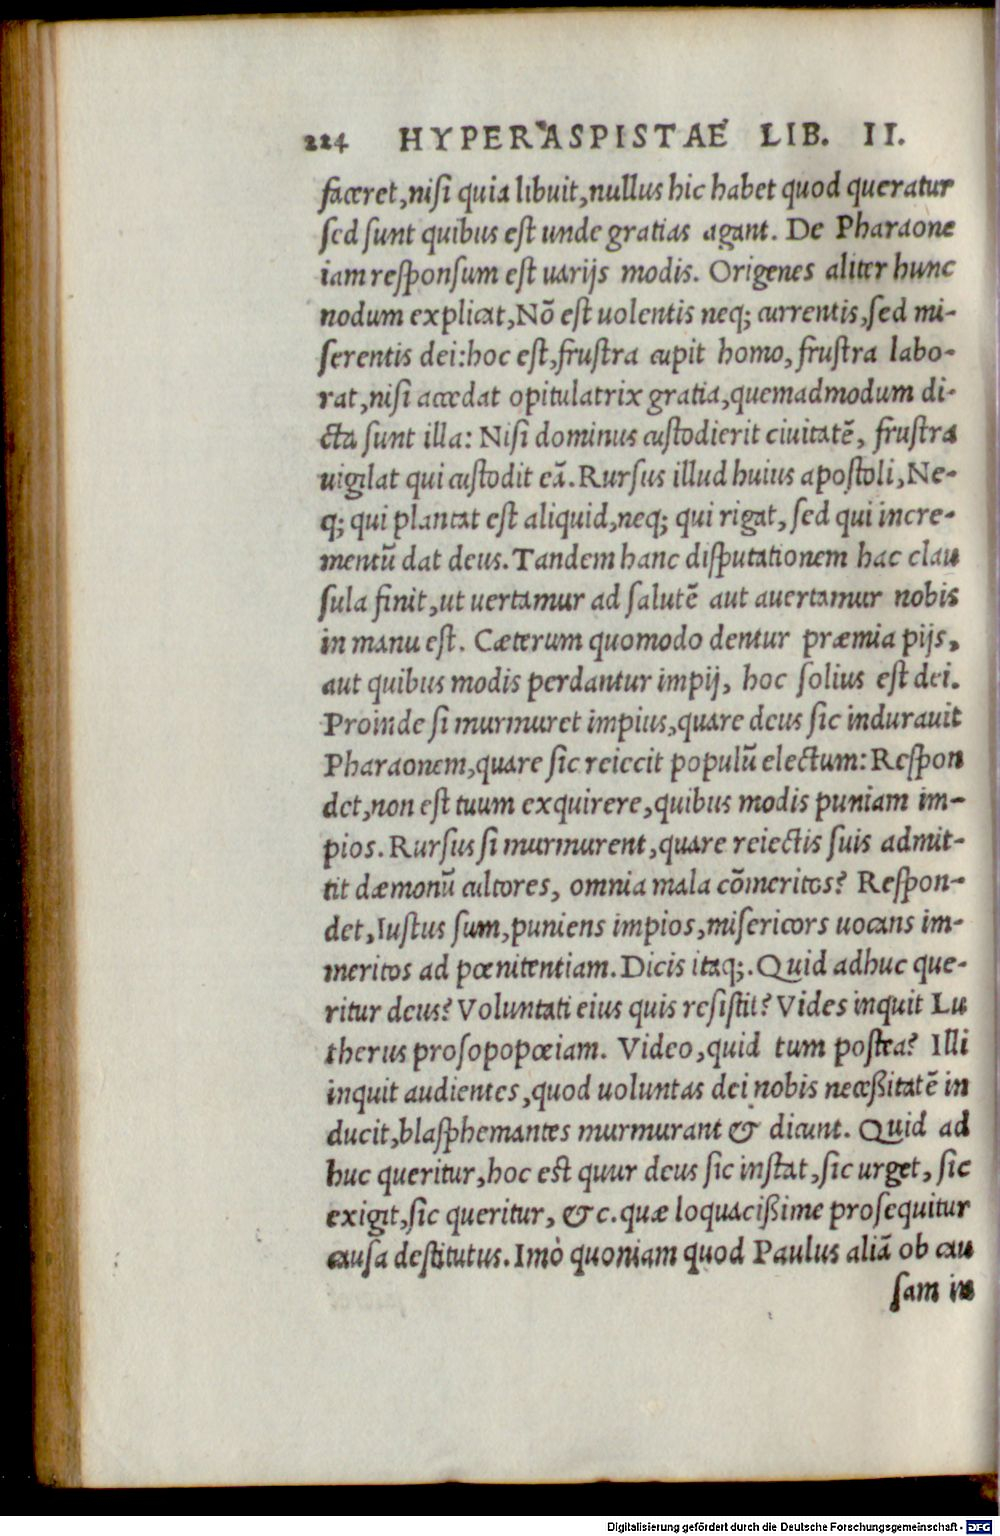 224 HYPERASPISTAE LIB. II.
faceret,nisi quia libuit,nullus hic habet quod queratur
sed sunt quibus est unde gratias agant. De Pharaone
iam responsum est uarijs modis. Origenes aliter hunc
nodum explicat,Nō est uolentis neq; currentis,sed mi-
serentis dei:hoc est,frustra cupit homo, frustra labo-
rat,nisi accedat opitulatrix gratia,quemadmodum di-
cta sunt illa: Nisi dominus custodierit ciuitatē, frustra
uigilat qui custodit eā. Rursus illud huius apostoli, Ne-
q; qui plantat est aliquid,neq; qui rigat, sed qui incre-
mentū dat deus. Tandem hanc disputationem hac clau
sula finit,ut uertamur ad salutē aut auertamur nobis
in manu est. Cæterum quomodo dentur præmia pijs,
aut quibus modis perdantur impij, hoc solius est dei.
Proinde si murmuret impius,quare deus sic indurauit
Pharaonem,quare sic reiecit populū electum: Respon
det,non est tuum exquirere,quibus modis puniam im-
pios. Rursus si murmurent,quare reiectis suis admit-
tit dæmonū cultores, omnia mala cōmeritos? Respon-
det,Iustus sum,puniens impios,misericors uocans im-
meritos ad pœnitentiam. Dicis itaq;. Quid adhuc que-
ritur deus? Voluntati eius quis resistit? Vides inquit Lu
therus prosopopœiam. Video,quid tum postea? Illi
inquit audientes,quod uoluntas dei nobis neceßitatē in
ducit,blasphemantes murmurant & dicunt. Quid ad
huc queritur,hoc est quur deus sic instat,sic urget, sic
exigit,sic queritur, &c.quæ loquacißime prosequitur
causa destitutus. Imò quoniam quod Paulus aliā ob cau
sam in
Digitalisierung gefördert durch die Deutsche Forschungsgemeinschaft - DFG